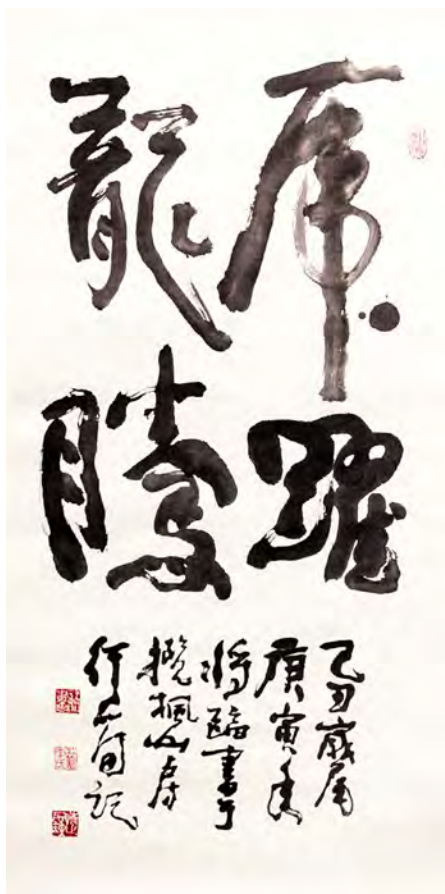 虎躍
龍騰
己丑歲尾
庚寅年
將臨書于
攬楓山房
記